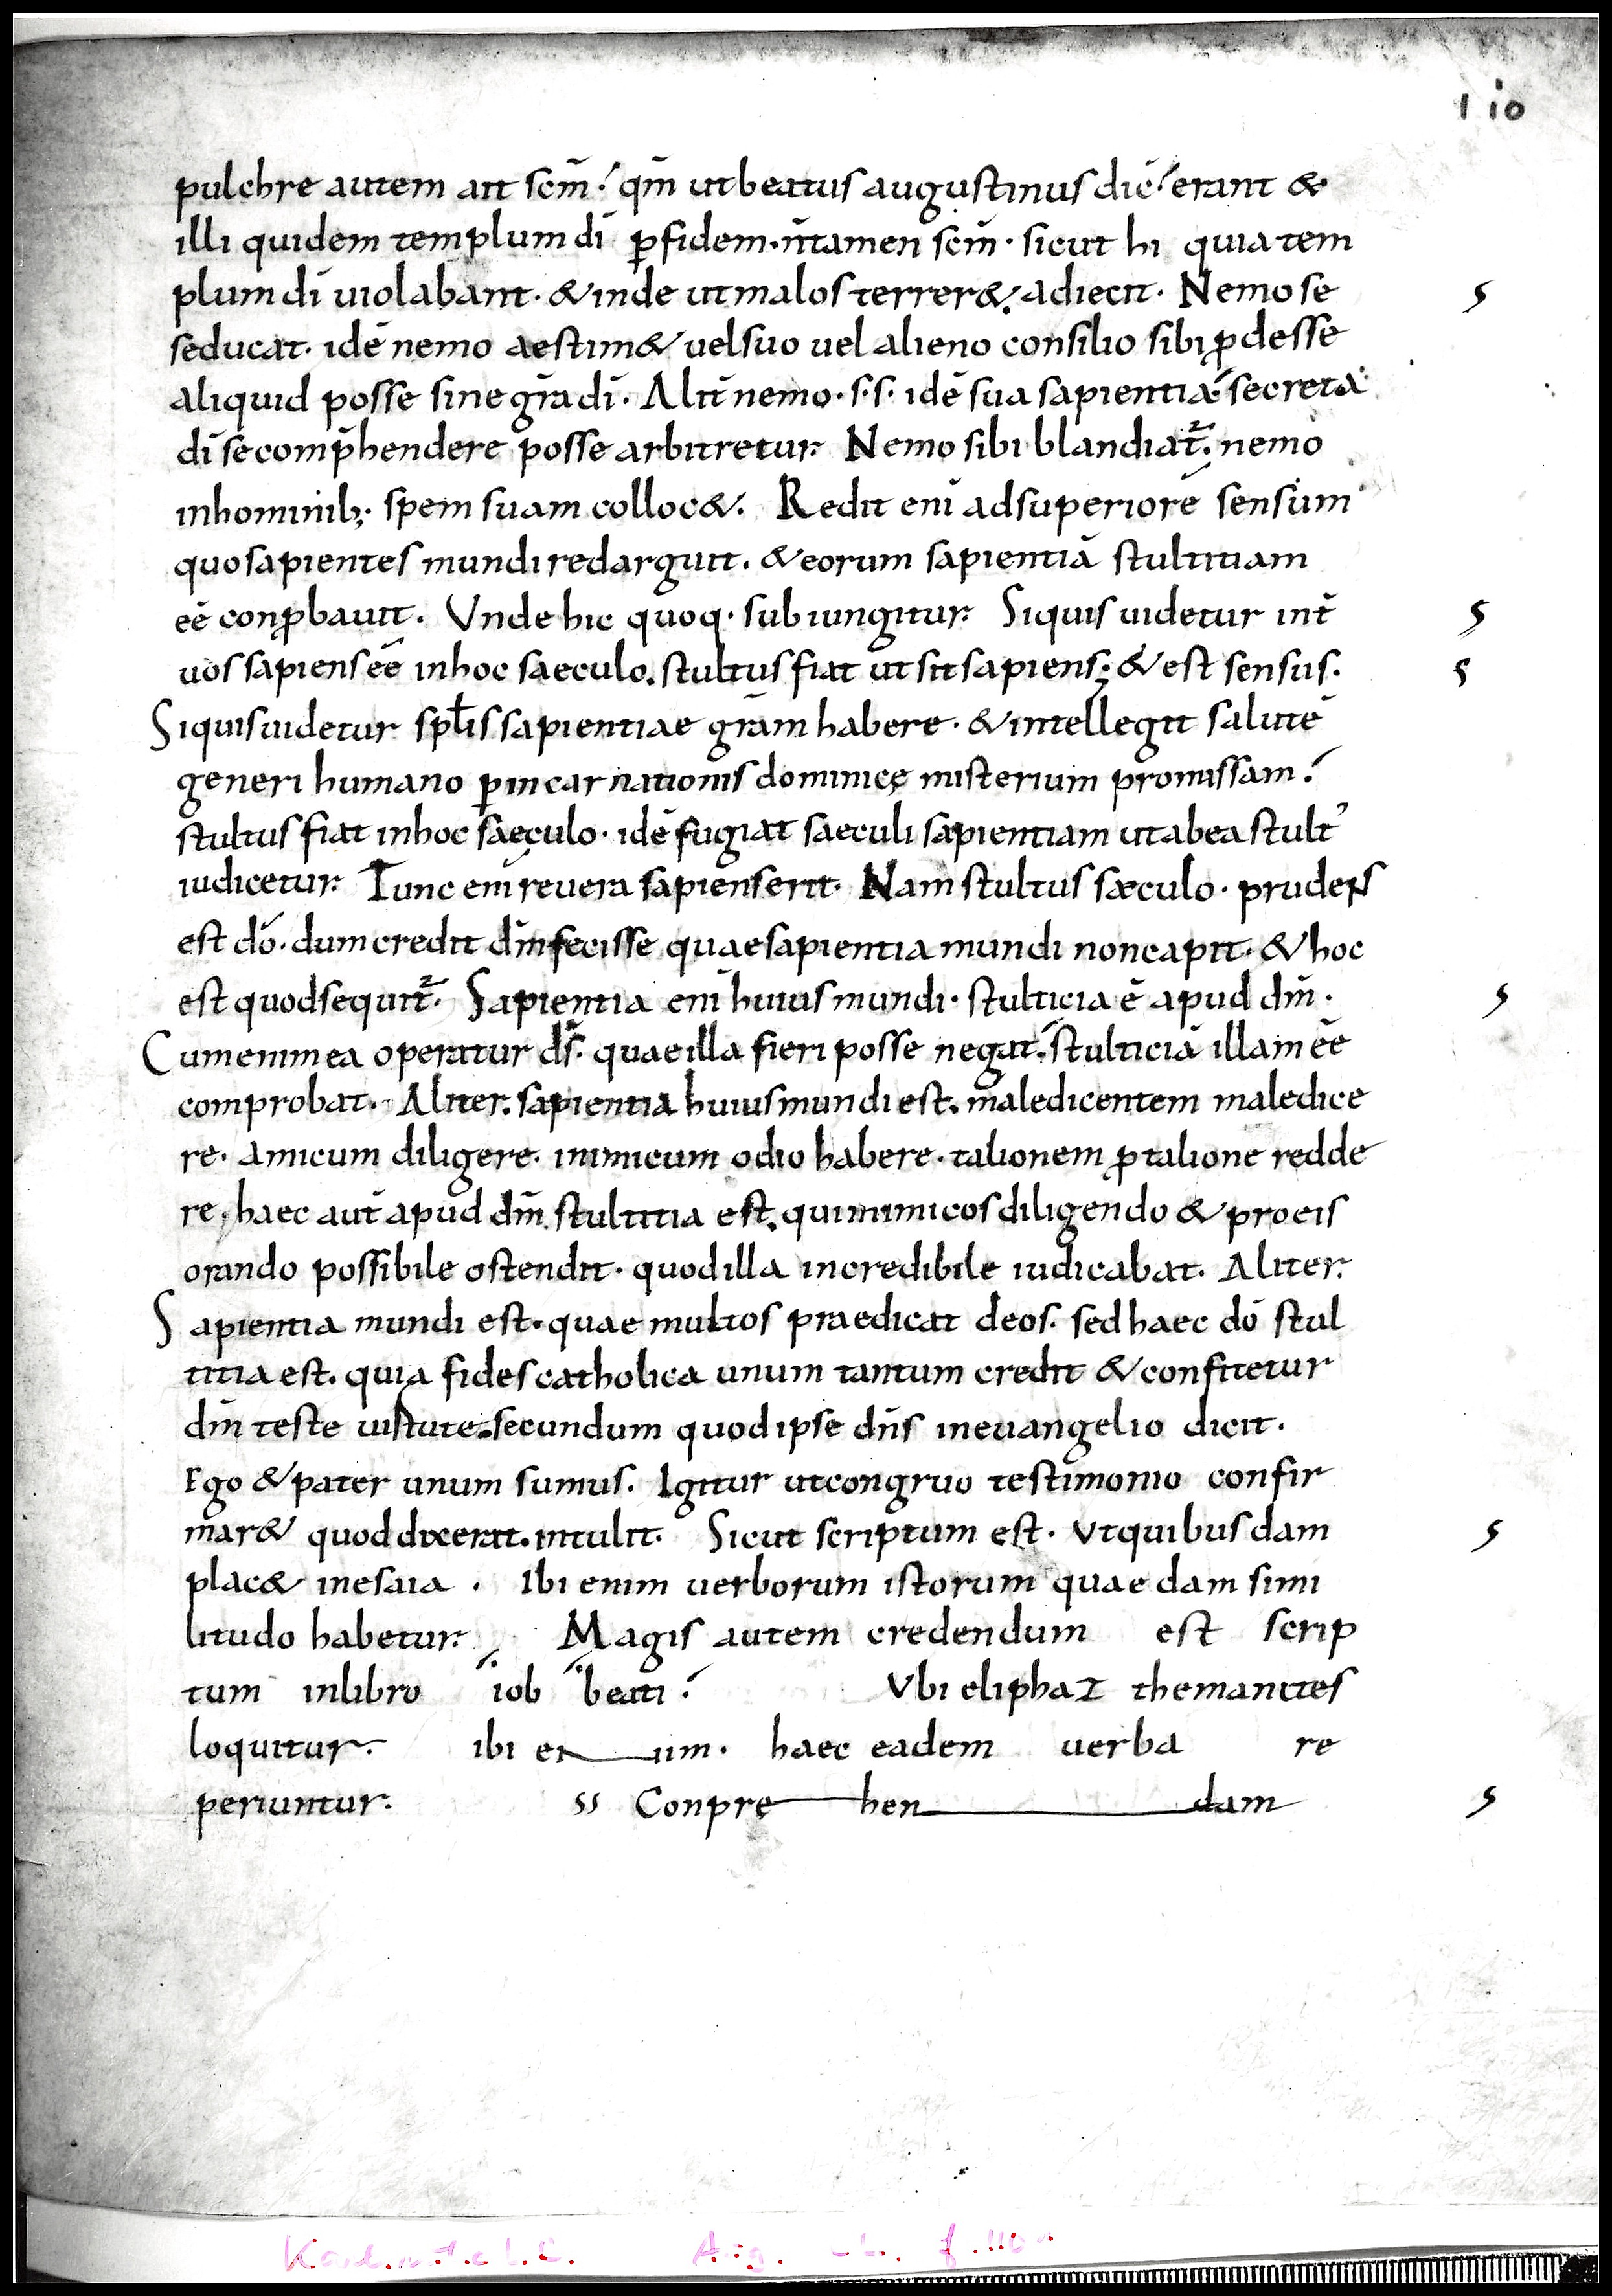 110
pulchre autem ait scm̄. qm̄ ut beatus augustinus dic̄ erant &
illi quidem templum dī ꝑ fidem. n̄ tamen scm̄. sicut hi quia tem
plum dī uiolabant. & inde ut malos terrer&. adiecit. Nemo se
seducat. idē nemo aestim& uel suo uel alieno consilio sibi ꝓdesse
aliquid posse sine gr̄a dī. Alit̄ nemo. s. s. idē sua sapientia secreta
dī se comp̄hendere posse arbitretur. Nemo sibi blandiat̄. nemo
in hominib;. spem suam colloc&. Redit enī ad superiorē sensum
quo sapientes mundi redarguit. & eorum sapientiā stultitiam
eē conꝓbauit. Vnde hic quoq. subiungitur. Siquis uidetur int̄
uos sapiens eē in hoc saeculo. stultus fiat ut sit sapiens; & est sensus.
Siquis uidetur spt̄lis sapientiae gr̄am habere. & intellegit salutē
generi humano ꝑ incarnationis dominicę misterium promissam.
stultus fiat in hoc saeculo. idē fugiat saeculi sapientiam ut ab ea stult’
iudicetur. Tunc enī reuera sapiens erit. Nam stultus sæculo. prudens
est dō. dum credit dm̄ fecisse quae sapientia mundi non capit. & hoc
est quod sequit̄. Sapientia enī huius mundi. stulticia ē apud dm̄.
Cum enim ea operatur ds̄. quae illa fieri posse negat. stulticiā illam eē
comprobat. Aliter. sapientia huius mundi est. maledicentem maledice
re. amicum diligere. inimicum odio habere. talionem ꝓ talione redde
re, haec aut̄ apud dm̄ stultitia est. qui inimicos diligendo & pro eis
orando possibile ostendit. quod illa incredibile iudicabat. Aliter.
Sapientia mundi est. quae multos praedicat deos. sed haec dō stul
titia est. quia fides catholica unum tantum credit & confitetur
dm̄ teste uirtute. secundum quod ipse dn̄s in euangelio dicit.
Ego & pater unum sumus. Igitur ut congruo testimonio confir
mar& quod dixerat. intulit. Sicut scriptum est. Vt quibusdam
plac& in esaia. Ibi enim uerborum istorum quaedam simi
litudo habetur. Magis autem credendum est scrip
tum in libro iob beati. Vbi eliphaz themanites
loquitur. ibi enim. haec eadem uerba re
periuntur. ss Conprę hen dam